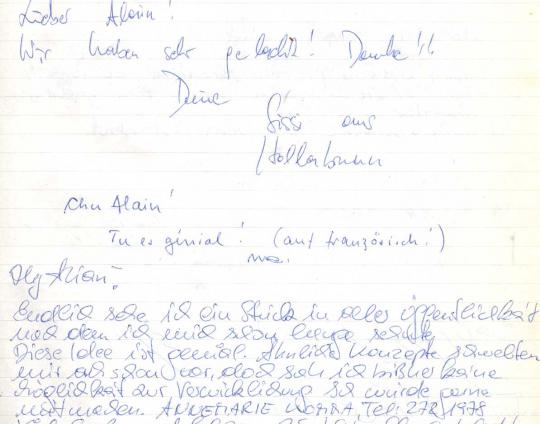 Lieber Alain!
Wir haben sehr gelacht! Danke!!
Deine
Sissi aus
Hollabrunn
Cher Alain!
Tu es génial! (auf französisch!)
Hey Alain!
Endlich sehe ich ein Stück in aller Öffentlichkeit
nach dem ich mich schon lange sehnte
Diese Idee ist genial. Ähnliche Konzepte schwebten
mir auch schon vor, doch sah ich bisher keine
Möglichkeit zur Verwirklichung ich würde gerne
mitmachen. ANNEMARIE Tel: 278/1978